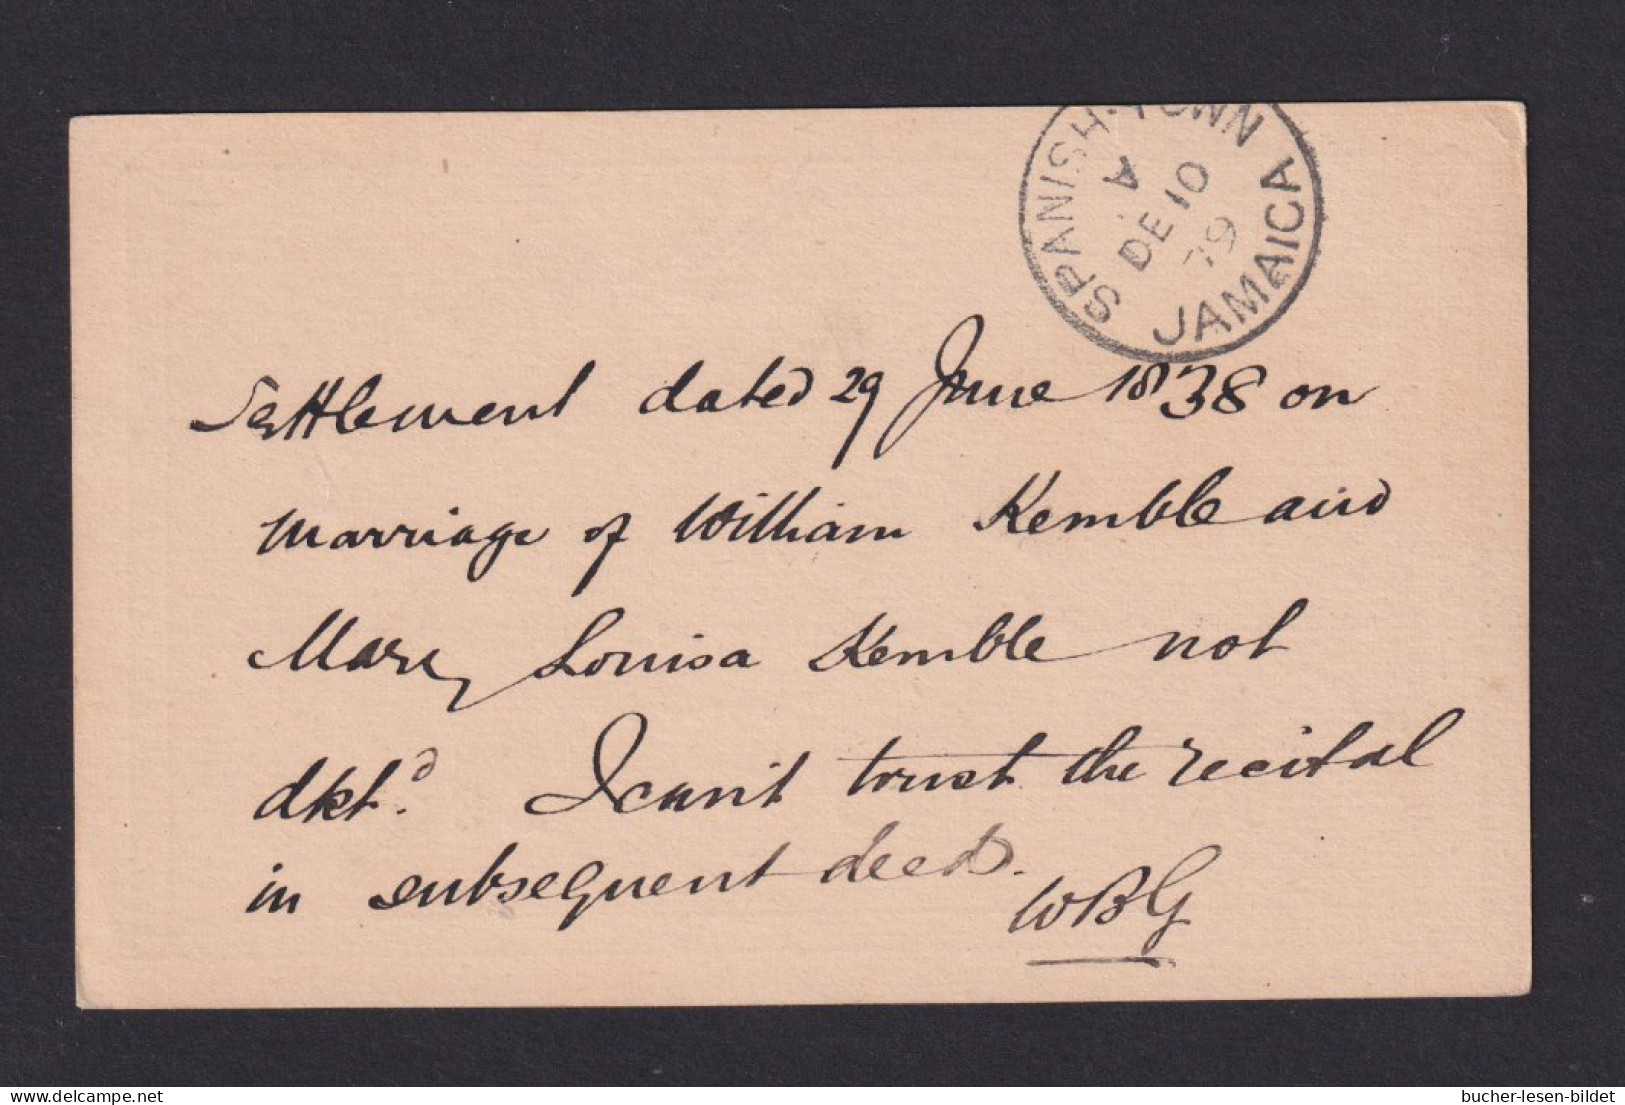 SPANISH-TOWN
A
DE 10
79
JAMAICA
Settlement dated 29 June 1838 on
marriage of William Kemble and
Mary Louisa Kemble not
dktd. I can't trust the recital
in subsequent deeds.
WBG
bucher-lesen-bildet